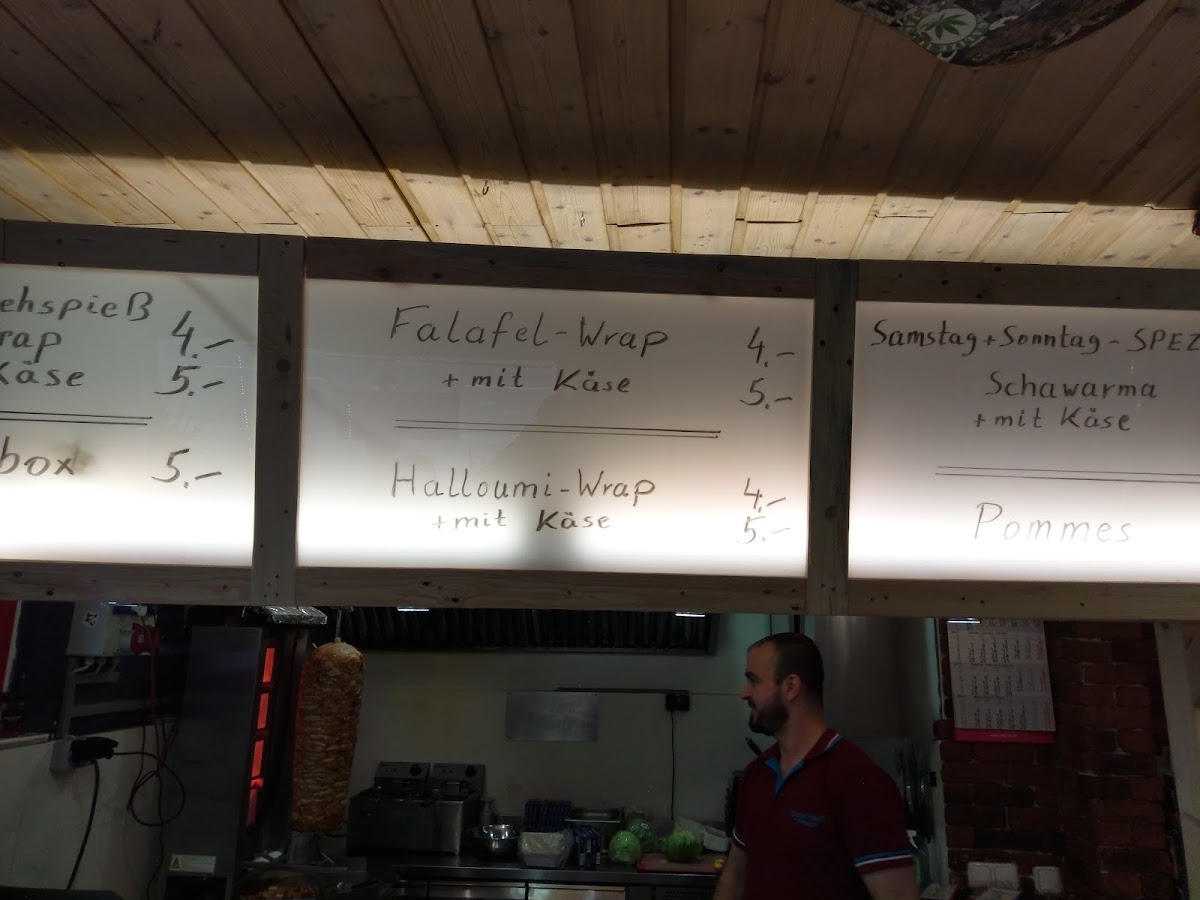 ehspieß 4.-
rap
Käse 5.-
box 5.-
Falafel-Wrap 4.-
+ mit Käse 5.-
Halloumi-Wrap 4.-
+ mit Käse 5.-
Samstag + Sonntag - SPEZ
Schawarma
+ mit Käse
Pommes